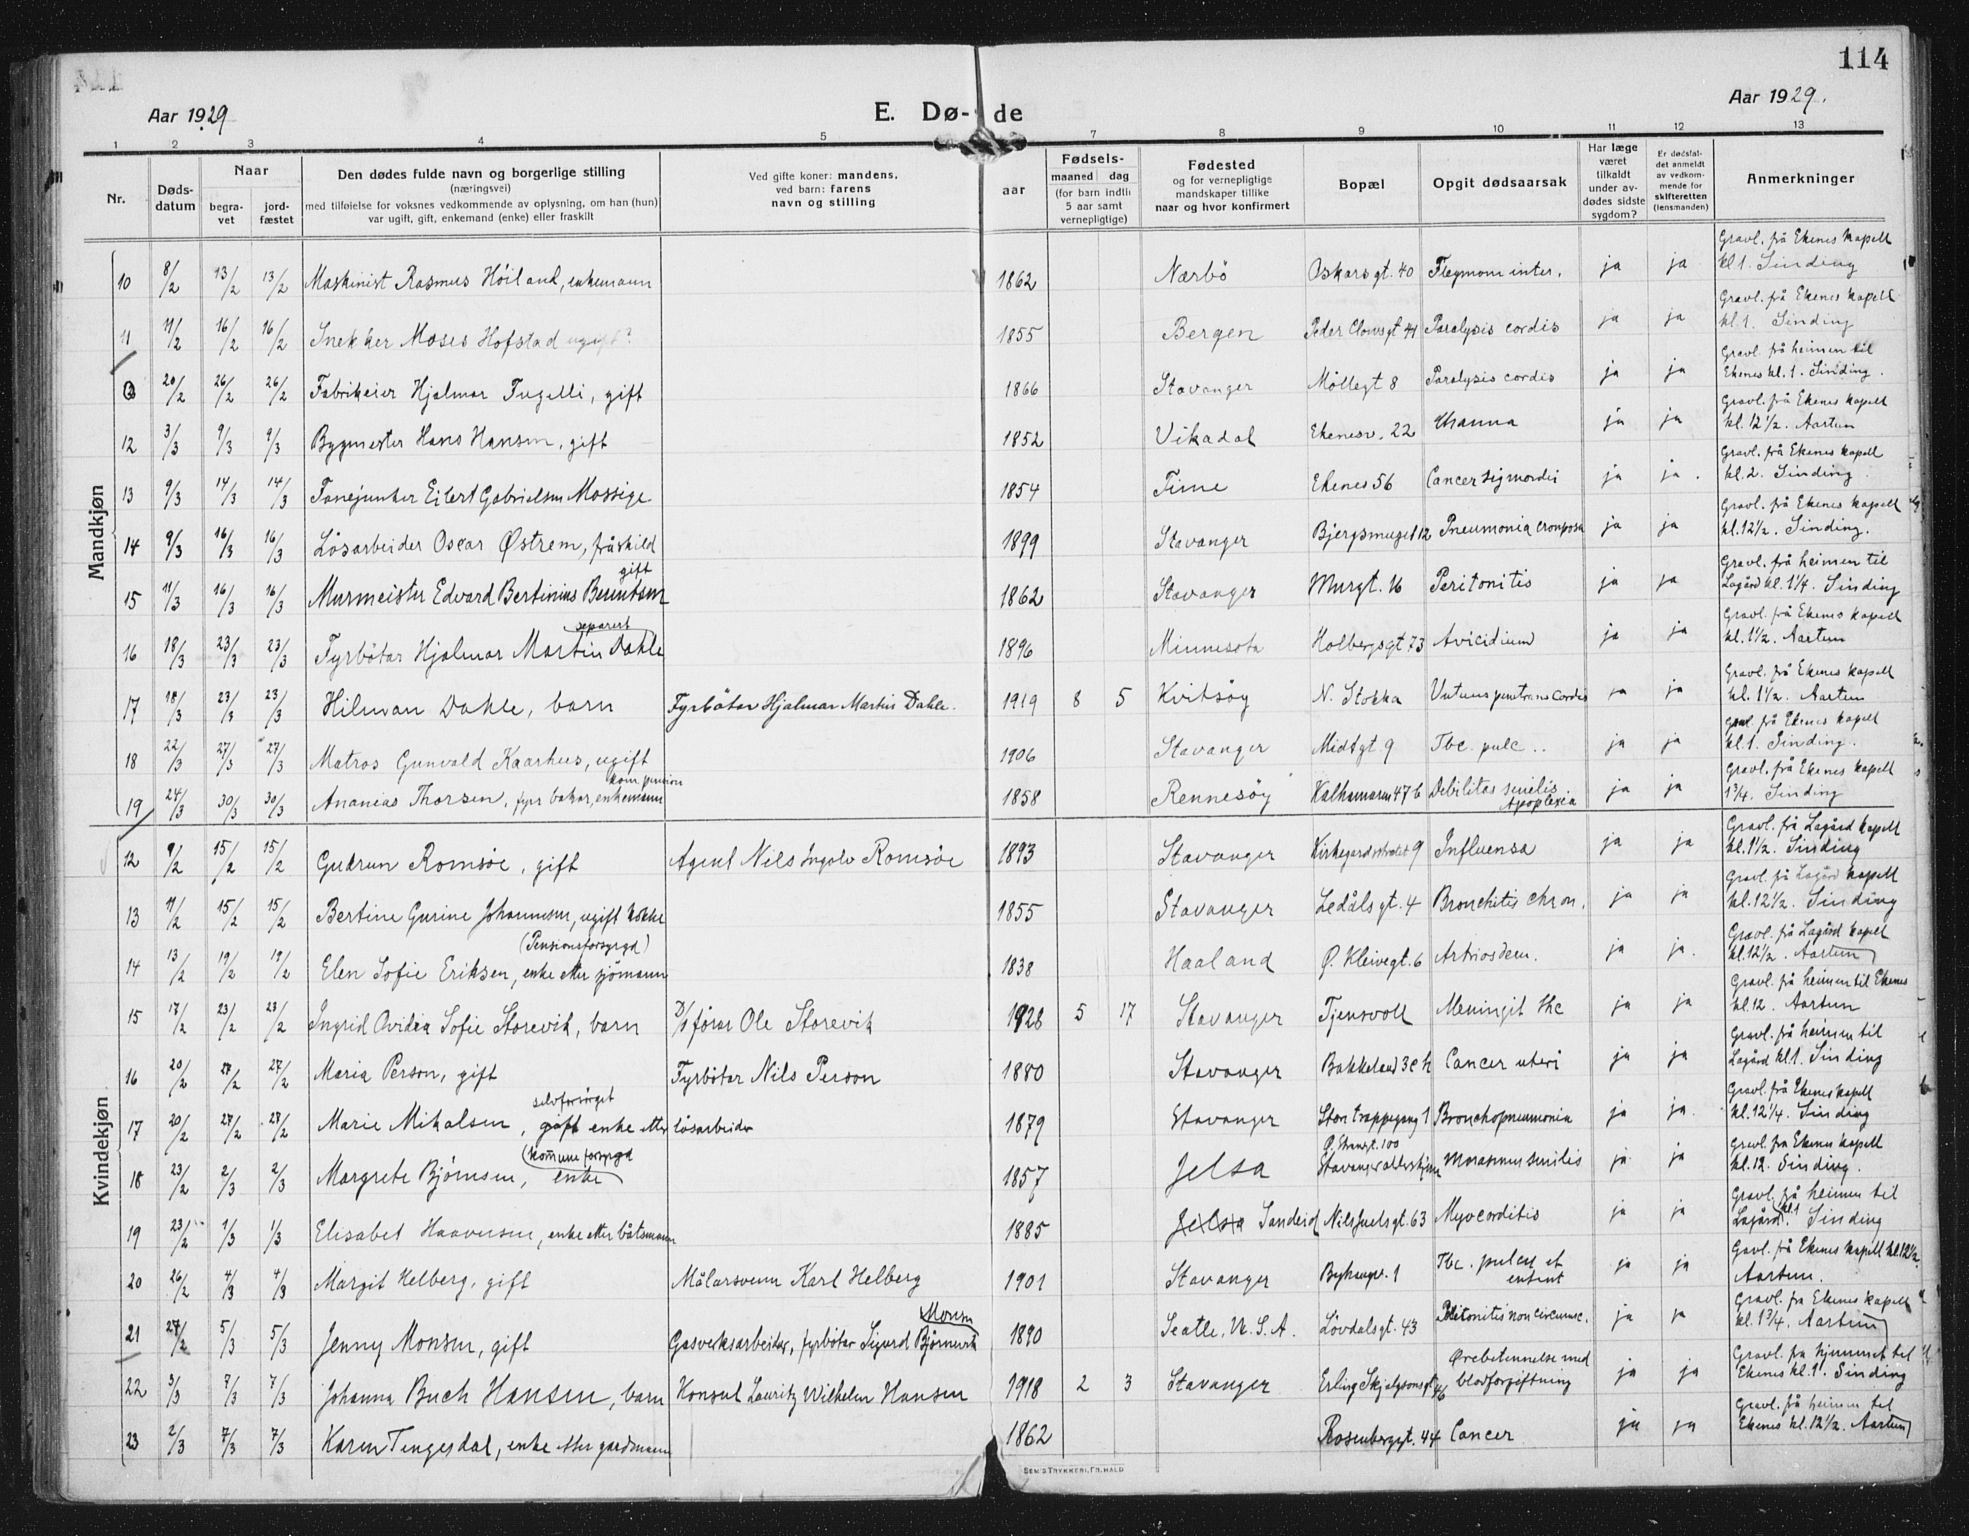 114
Aar 1929
E. Dø- de
Aar 1929.
1 2 3 4 5 7 8 9 10 11 12 13
Nr.
Døds-
datum
Naar
begra-
vet
jord-
fæstet
Den dødes fulde navn og borgerlige stilling
(næringsvei)
med tilføielse for voksnes vedkommende av oplysning, om han (hun)
var ugift, gift, enkemand (enke) eller fraskilt
Ved gifte koner: mandens,
ved barn: farens
navn og stilling
aar
Fødsels-
maaned dag
(for barn indtil
5 aar samt
vernepligtige)
Fødested
og for vernepligtige
mandskaper tillike
naar og hvor konfirmert
Bopæl
Opgit dødsaarsak
Har læge
været
tilkaldt
under av-
dødes sidste
sygdom?
Er dødsfal-
det anmeldt
av vedkom-
mende for
skifteretten
(lensmanden)
Anmerkninger
Mandkjøn
10 8/2 13/2 13/2 Maskinist Rasmus Höiland, enkemann 1862 Nærbö Oskarsgt. 40 Flegmone inter. ja ja Gravl. frå Ekenes kapell kl 1. Sinding
11 11/2 16/2 16/2 Snekker Moses Hofstad ugift? 1855 Bergen Peder Clowsgt 41 Paralysis cordis ja ja Gravl. frå Ekenes kapell kl. 1. Sinding
20/2 26/2 26/2 Fabrikeier Hjalmar Fugelli, gift 1866 Stavanger Möllegt 8 Paralysis cordis ja ja Gravl. frå heimen til Ekenes kl. 1. Sinding.
12 3/3 9/3 9/3 Bygmester Hans Hansen, gift 1852 Vikadal Ekenesv. 22 ja ja Gravl. frå Ekenes kapell kl. 12 1/2. Aartun
13 9/3 14/3 14/3 Fanejunker Eilert Gabrielsen Mossige 1854 Time Ekenes 56 Cancer sigmordii ja ja. Gravl. frå Ekenes kapell kl. 2. Sinding
14 9/3 16/3 16/3 Lösarbeider Oscar Østrem, fråskild 1899 Stavanger Bjergsmuget 12 Pneumonia crouposa ja ja Gravl. frå Ekenes kapell kl. 12 1/2. Sinding.
15 11/3 16/3 16/3 Murmeister Edvard Bertinius Berentsen gift 1862 Stavanger Murgt. 16 Peritonitis ja ja Gravl. frå heimen til Lagård kl. 1 1/4. Sinding
16 18/3 23/3 23/3 Fyrbötar Hjalmar Martin Dahle separert 1896 Minnesota Holbergsgt 73 Avicidium ja ja Gravl. frå Ekenes kapell kl. 1 1/2. Aartun
17 18/3 23/3 23/3 Hilman Dahle, barn Fyrbötar Hjalmar Martin Dahle. 1919 8 5 Kvitsöy N. Stokka ja ja Gravl. frå Ekenes kapell kl. 1 1/2. Aartun
18 22/3 27/3 27/3 Matros Gunvald Kaarhus, ugift 1906 Stavanger Midtgt 9 Tbc. pulc.. ja ja Gravl. frå Ekenes kapell kl. 1. Sinding.
19 24/3 30/3 30/3 Ananias Thorsen, fyrbøtar, enkemann kom. pension 1858 Rennesöy 47b Debilitas senilis. Apoplexia ja ja Gravl. frå Ekenes kapell 1 3/4. Sinding
Kvindekjøn
12 9/2 15/2 15/2 Gudrun Romsöe, gift Agent Nils Ingolv Romsöe 1893 Stavanger Kirkegårdstredet 9 Influensa ja ja Gravl. frå Lagård kapell kl. 1 1/2. Sinding
13 11/2 15/2 15/2 Bertine Gurine Johannesen, ugift kokke 1855 Stavanger Ledålsgt. 4 Bronchitis chron. ja ja Gravl. frå Lagård kapell kl. 12 1/2. Sinding
14 13/2 19/2 19/2 Elen Sofie Eriksen, enke etter sjömann (Pensionsforsyrgd) 1838 Haaland Ø. Kleivegt. 6 ja ja. Gravl. frå Lagård kapell kl. 12 1/2. Aartun
15 17/2 23/2 23/2 Ingrid Ovidia Sofie Storevik, barn D/S förar Ole Storevik 1928 5 17 Stavanger Tjensvoll Meningit tbc ja ja Gravl. frå heimen til Ekenes kl. 12. Aartun
16 20/2 27/2 27/2 Maria Person, gift Fyrbötar Nils Person 1880 Stavanger Bakkeland 3c h Cancer uteri ja ja Gravl. frå heimen til Lagård kl. 1. Sinding
17 20/2 27/2 27/2 Marie Mikalsen, gift enke etter lösarbeider selvforsörget 1879 Stavanger Stor trappegang 1 Bronchopneumonia ja ja. Gravl. frå Ekenes kapell kl. 12 1/4. Sinding
18 23/2 2/3 2/3 Margrete Björnsen, enke (kommune forsyrgd 1857 Jelsa Ø. Strandgt. 100 Stavanger aldersheim Marasmus senilis ja ja Gravl. fra Ekenes kapell kl. 12. Sinding.
19 23/2 1/3 1/3 Elisabet Haaversen, enke etter båtsmann 1885 Jelsa Sandeid Nils Juelsgt. 63 Myocorditis ja ja Gravl. frå heimen til Lagård kl 1 Sinding
20 26/2 4/3 4/3 Margit Helberg, gift Målarsvenn Karl Helberg 1901 Stavanger Byhaugv. 1 Tbc. pulm et entent ja ja Gravl. frå Ekenes kapell kl. 12 1/2 Aartun.
21 27/2 5/3 5/3 Jenny Monsen, gift Gasverksarbeidar, fyrbötar Sigurd Björnevik Monsen 1890 Seatle, U. S. A. Lövdalsgt. 43 Peritonitis non circumsc. ja ja Gravl. fra Ekenes kapell kl. 1 3/4. Aartun
22 3/3 7/3 7/3 Johanna Buch Hansen, barn Konsul Lauritz Wilhelm Hansen 1918 2 3 Stavanger Erling Skjalgsonsgt 46 Ørebetennelse med blodforgiftning ja ja Gravl. fra hjemmet til Ekenes kl. 1. Sinding
23 2/3 7/3 7/3 Karen Tengesdal, enke etter gardmann 1862 Rosenberggt. 44 Cancer ja ja Gravl. frå heimen til Ekenes kl. 12 1/2. Aartun
SEM'S TRYKKERI, FR. HALD